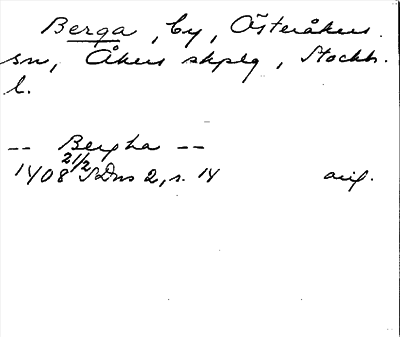 Berga, by, Österåkers
sn, Åkers skplg, Stockh.
l.
-- Bergha --
1408 21/2 SDns 2, s. 14 orig.